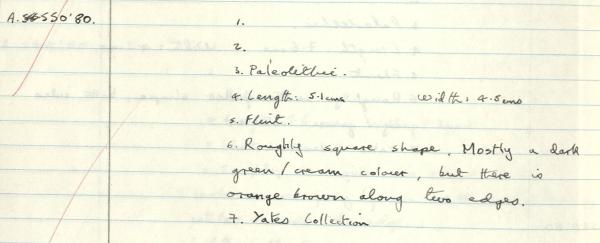 A. SSO'80.
1.
2.
3. Paleolithic.
4. Length: 5.1cms width: 4.5cms
5. Flint.
6. Roughly square shape. Mostly a dark
green/cream colour, but there is
orange brown along two edges.
7. Yates Collection